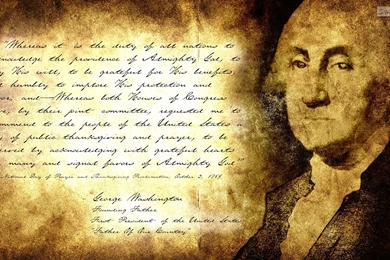 "Whereas it is the duty of all nations to
nowledge the providence of Almighty God, to
y His will, to be grateful for His benefits,
t humbly to implore His protection and
or, and—Whereas both Houses of Congress
e, by their joint committee, requested me to
mmend to the people of the United States
of public thanksgiving and prayer, to be
erved by acknowledging with grateful hearts
many and signal favors of Almighty God"
National Day of Prayer and Thanksgiving Proclamation, October 3, 1789
George Washington
Founding Father
First President of the United States
"Father Of Our Country"